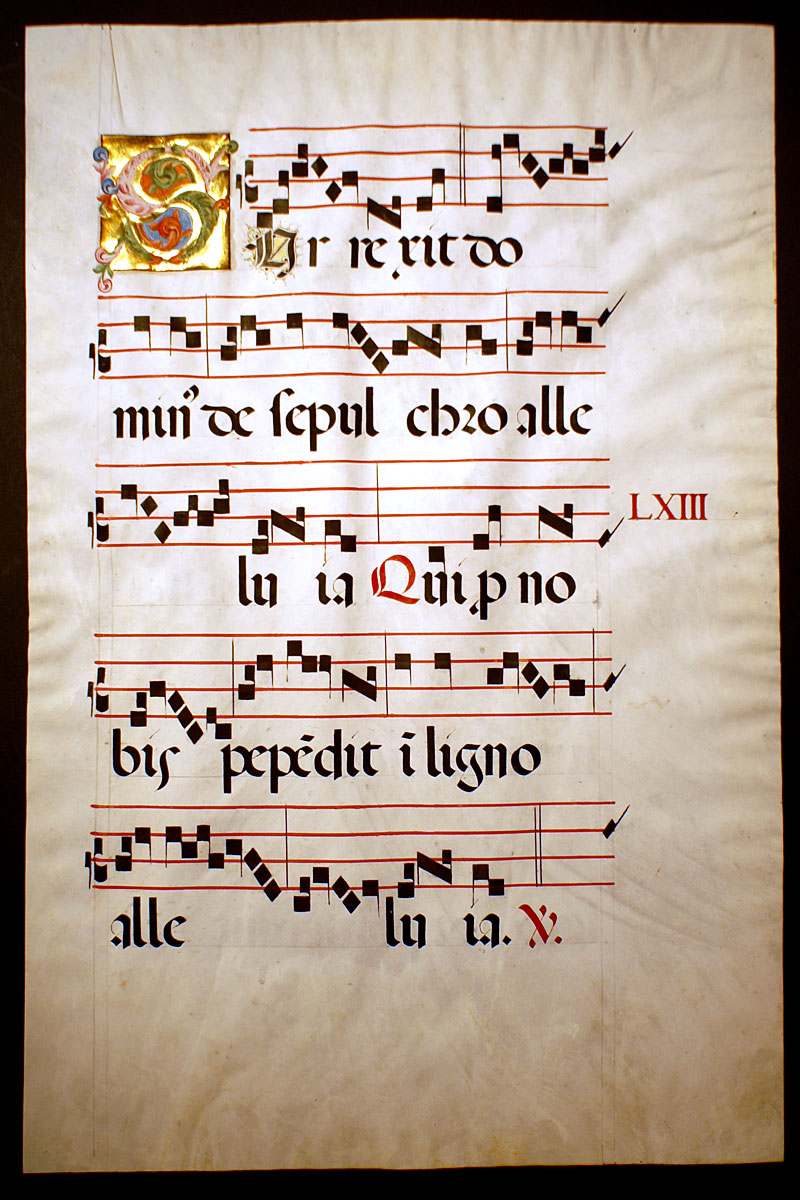 Sur rexit do
min' de sepul chro alle
lu ia Qui p no
bis pepēdit ī ligno
alle lu ia. ℣.
LXIII